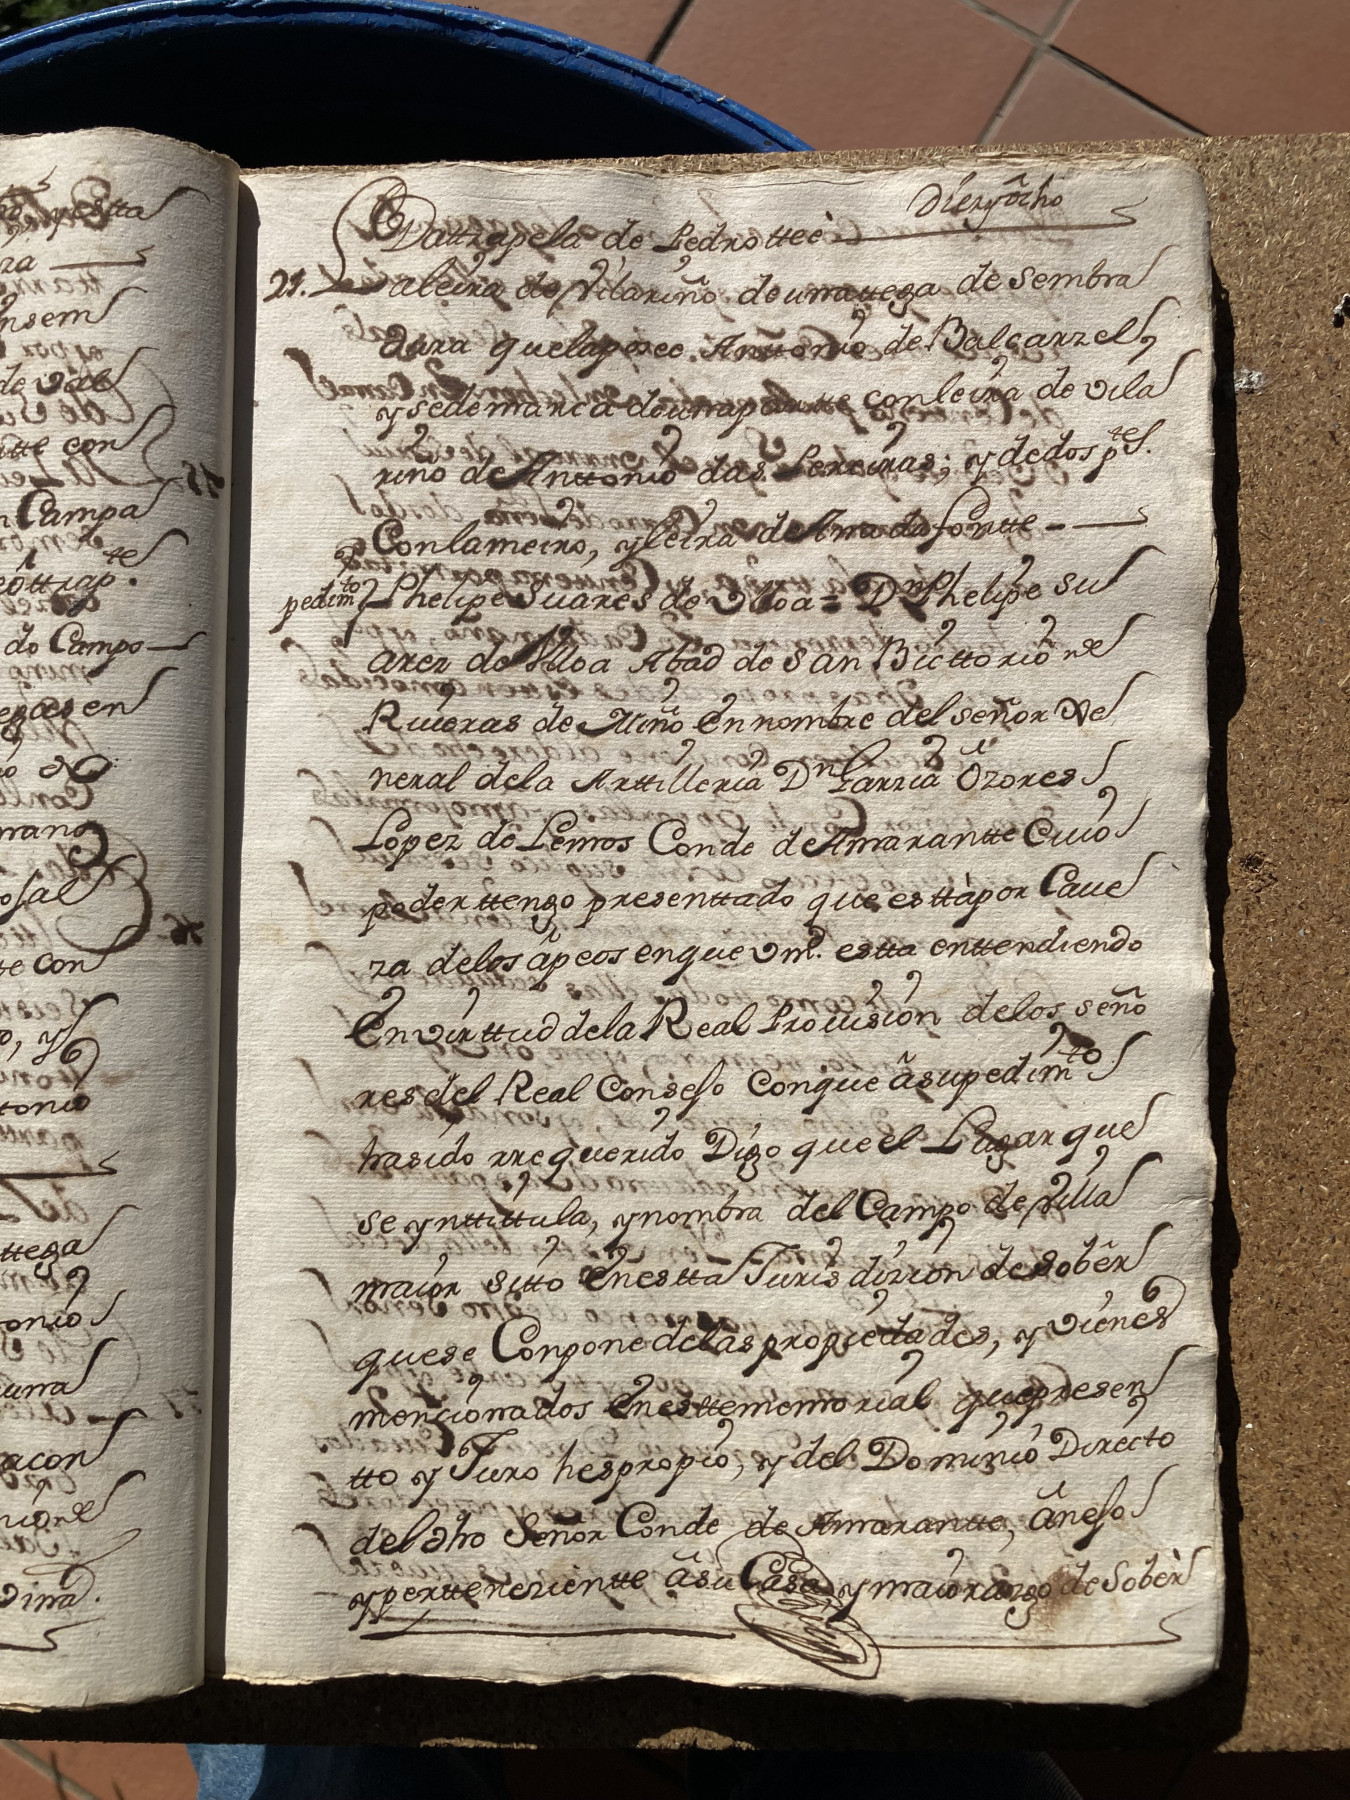 Diez y ôcho
Dattrapela de Pedrottei
21. Laleira de Vilariño de una tega de sembra
dura que la poseo Anttonio de Balcarzel,
y se demarca de una partte con leira de Vila
riño de Anttonio das Perreiras; y de dos p.tes
Con lameiro, y leira de Ama da fontte
pedim.to Phelipe Suares de Vlloa = D.n Phelipe Su
arez de Vlloa Abad de San Bicttorio de
Riueras de Miño en nombre del señor Ge
neral de la Arttilleria D.n Garzia Ôzores
Lopez de Lemos Conde de Amarantte Cuio
poder ttengo presenttado que estta por Caue
za de los âpeos en que Vm.d estta enttendiendo
En virttud de la Real Prouision de los seño
res del Real Consejo Con que â su pedim.to
ha sido rrequerido Digo que el Lugar que
se ynttittula, y nombra del Campo de Villa
maior sitto En estta Jurisdizion de sobèr
que se Conpone de las propiedades, y vienes
mencionados En estte memorial que presen
tto y Juro hes propio, y del Dominio Directo
del dho Señor Conde de Amarantte, ânejo
y pertteneziente â su Casa y maiorazgo de Sobèr
o, y estta
za
nsem
de vàl
tte con
n Campa
ottrap.te
do Campo
en
mano
osal
te con
o, y
tonio
ttega
tonio
una
a con